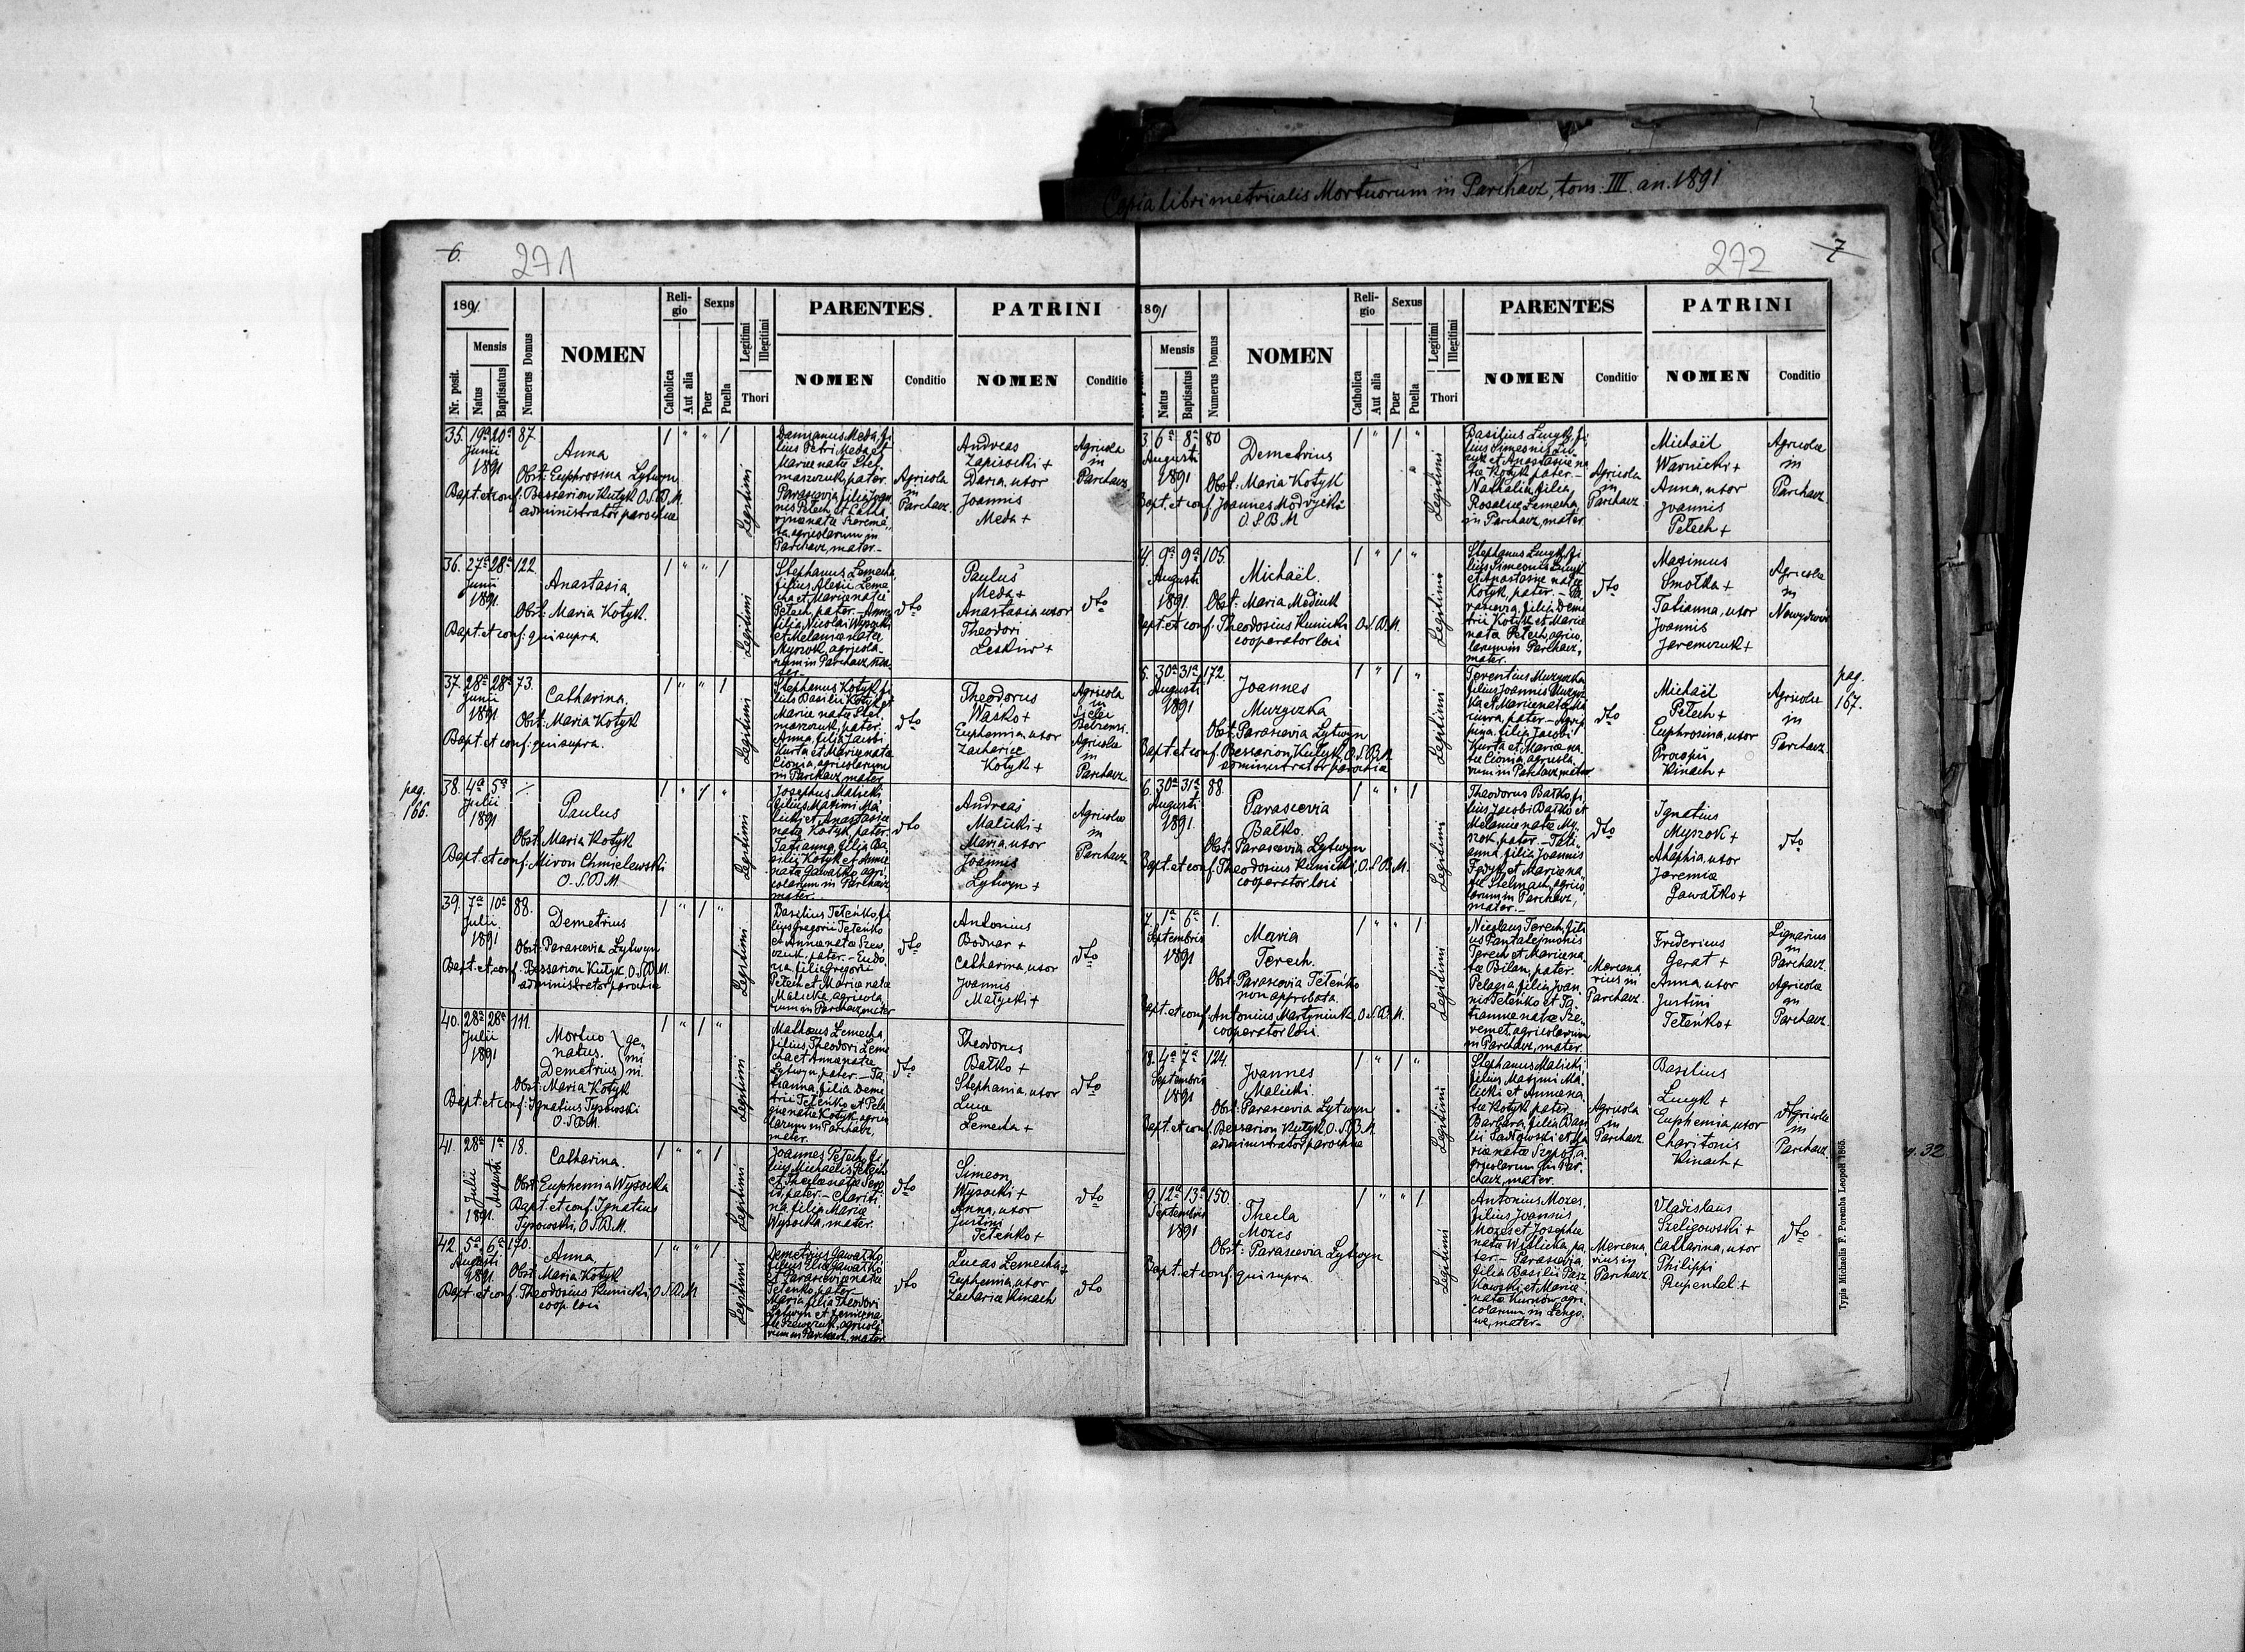 Copia libri metricalis Mortuorum in Parchacz, tom: III. an. 1891
6. 271
1891.
Nr. posit.
Mensis
Natus
Baptisatus
Numerus Domus
NOMEN
Religio
Catholica
Aut alia
Sexus
Puer
Puella
Legitimi
Illegitimi
Thori
PARENTES.
NOMEN
Conditio
PATRINI
NOMEN
Conditio
35. 19a 20a 87.
Junii
1891
Anna
Obst: Euphrosina Lytwyn
Bapt. et conf. Bessarion Kutyk O.S.B.M.
administrator parochiae
Legitimi
Damianus Meda, fi
lius Petri Meda et
Mariae natae Stel
maszczuk, pater
Parascevia, filia Joan
nis Petech et Catha
rinae natae
agricolarum in
Parchacz, mater.-
Agricola
in
Parchacz.
Andreas
Zapisocki +
Daria, uxor
Joannis
Meda +
Agricola
in
Parchacz
36. 27a 28a 122.
Junii
1891.
Anastasia
Obst: Maria Kotyk.
Bapt. et conf: qui supra.
Legitimi
Stephanus Lemecha,
filius Alexii Leme
cha et Mariae natae
Petech, pater. - Anna
filia Nicolai Wysocki
et Melaniae natae
Myszok, agricola-
rum in Parchacz, ma
ter.-
dto
Paulus
Meda +
Anastasia uxor
Theodori
Leskiw +
dto
37. 28a 28a 73.
Junii
1891
Catharina.
Obst: Maria Kotyk
Bapt. et conf: qui supra.
Legitimi
Stephanus Kotyk, fi
lius Basilii Kotyk et
Mariae natae Stel
maszczuk, pater.
Anna, filia Jacobi
Kurta et Mariae natae
Cionia, agricolarum
in Parchacz, mater
dto
Theodorus
Wasko +
Euphemia, uxor
Zachariae
Kotyk +
Agricola
in
Agricolae
in
Parchacz
pag.
166.
38. 4a 5a
Julii
1891
Paulus
Obst: Maria Kotyk
Bapt. et conf: Miron Chmielewski
O.S.B.M.
Legitimi
Josephus Malicki
filius Maximi Ma
licki et Anastasiae
natae Kotyk, pater.
Tatianna, filia Ba
silii Kotyk et Annae
natae Gawałko, agri
colarum in Parchacz
mater.
dto
Andreas
Malicki +
Maria, uxor
Joannis
Lytwyn +
Agricolae
in
Parchacz
39. 7a 10a 88.
Julii
1891
Demetrius
Obst: Parascevia Lytwyn
Bapt. et conf. Bessarion Kutyk, O.S.B.M.
administrator parochiae
Legitimi
Basilius Teteńko, fi
lius Gregorii Teteńko
et Annae natae Szew
czuk, pater. - Eudo
xia, filia Gregorii
Petech et Mariae natae
Malicka, agricola
rum in Parchacz mater
dto
Antonius
Bodnar +
Catharina, uxor
Joannis
Małycki +
dto
40. 28a 28a 111.
Julii
1891
Mortuo
natus.
Demetrius
ge-
mi
ni.
Obst: Maria Kotyk
Bapt. et conf: Ignatius Tysowski
O.S.B.M.
Legitimi
Mathaeus Lemecha,
filius Theodori Leme
cha et Annae natae
Lytwyn, pater. - Ta
tianna, filia Deme
trii Teteńko et Pela
giae natae Kotyk, agrico
larum in Parchacz,
mater.
dto
Theodorus
Bałko +
Stephania, uxor
Lucae
Lemecha +
dto
41. 28a 1a 18.
Julii
Augusti
1891.
Catharina.
Obst: Euphemia Wysocka
Bapt. et conf. Ignatius
Tysowski, O.S.B.M.
Legitimi
Joannes Petech, fi
lius Michaelis Petech
et Theclae natae
pater. - Chariti
na, filia Mariae
Wysocka, mater.
dto
Simeon
Wysocki +
Anna, uxor
Justini
Teteńko +
dto
42. 5a 6a 170.
Augusti
1891.
Anna
Obst: Maria Kotyk
Bapt. et conf. Theodosius Kunicki, O.S.B.M.
coop. loci
Legitimi
Demetrius Gawałko
filius Eliae Gawałko
et Parasceviae natae
Teteńko, pater.-
Maria, filia Theodori
Lytwyn et Xeniae na
tae Szewczuk, agricola
rum in Parchacz, mater
dto
Lucas Lemecha +
Euphemia, uxor
Zachariae Kinach
dto
272 7
1891
Mensis
Natus
Baptisatus
Numerus Domus
NOMEN
Religio
Catholica
Aut alia
Sexus
Puer
Puella
Legitimi
Illegitimi
Thori
PARENTES
NOMEN
Conditio
PATRINI
NOMEN
Conditio
3. 6a 8a 80
Augusti
1891
Demetrius
Obst: Maria Kotyk
Bapt. et conf. Joannes Modrycki
O.S.B.M
Legitimi
Basilius Lucyk, fi
lius Simeonis Lu-
cyk et Anastasiae na
tae Kotyk, pater.-
Nathalia, filia
Rosaliae Lemecha,
in Parchacz, mater
Agricola
in
Parchacz
Michaël
Warnicki +
Anna, uxor
Joannis
Petech +
Agricolae
in
Parchacz.
4. 9a 9a 105.
Augusti
1891.
Michaël.
Obst: Maria Mediuk
Bapt. et conf: Theodosius Kunicki O.S.B.M.
cooperator loci
Legitimi
Stephanus Lucyk, fi
lius Simeonis Lucyk
et Anastasiae natae
Kotyk, pater. - Pa
rascevia, filia Deme
trii Kotyk et Mariae
natae Petech, agrico
larum in Parchacz,
mater.
dto
Maximus
Smołka +
Tatianna, uxor
Joannis
Jaremczuk +
Agricolae
in
Nowydwór
pag.
167.
5. 30a 31a 172.
Augusti
1891
Joannes
Murgczka
Obst: Parascevia Lytwyn
Bapt. et conf. Bessarion Kutyk, O.S.B.M.
administrator parochiae
Legitimi
Terentius
filius Joannis
ka et Mariae natae
pater. - Agrip
pina, filia Jacobi
Kurta et Mariae na
tae Cionia, agricola
rum in Parchacz mater
dto
Michaël
Petech +
Euphrosina, uxor
Procopii
Kinach +
Agricolae
in
Parchacz.
6. 30a 31a 88.
Augusti
1891.
Parascevia
Bałko.
Obst: Parascevia Lytwyn
Bapt. et conf. Theodosius Kunicki, O.S.B.M.
cooperator loci
Legitimi
Theodorus Bałko, fi
lius Jacobi Bałko et
Melaniae natae My
szok, pater. - Tati
anna, filia Joannis
Fedyk et Mariae na
tae Stelmach, agrico
larum in Parchacz,
mater.-
dto
Ignatius
Myszok +
Ahaphia, uxor
Jeremiae
Gawałko +
dto
7. 1a 6a 1.
Septembris
1891
Maria
Terech.
Obst: Parascevia Teteńko
non approbata.
Bapt. et conf. Antonius Martyniuk, O.S.B.M.
cooperator loci.
Legitimi
Nicolaus Terech, fili
us Pantalejmonis
Terech et Mariae na
tae Bilan, pater.
Pelagia, filia Joan
nis Teteńko et Ta
tiannae natae Sze
remet, agricolarum
in Parchacz, mater.
Mercena
rius in
Parchacz.
Fredericus
Gerat +
Anna, uxor
Justini
Teteńko +
Lignarius
in
Parchacz.
Agricola
in
Parchacz.
8. 4a 7a 124.
Septembris
1891
Joannes
Malicki.
Obst: Parascevia Lytwyn
Bapt. et conf. Bessarion Kutyk O.S.B.M.
administrator parochiae
Legitimi
Stephanus Malicki
filius Maximi Ma
licki et Annae na
tae Kotyk, pater
Barbara, filia Basi
lii Sadłowski et Ma
riae natae
gricolarum in Par
chacz, mater.
Agricola
in
Parchacz
Basilius
Lucyk +
Euphemia, uxor
Charitonis
Kinach +
Agricolae
in
Parchacz.
32
9. 12a 13a 150.
Septembris
1891
Thecla
Mozes
Obst: Parascevia Lytwyn
Bapt. et conf. qui supra
Legitimi
Antonius Mozes,
filius Joannis
Mozes et Josephae
natae Wislicka, pa
ter. - Parascevia,
filia Basilii Pasz
kowski et Mariae
natae Kurnow, agri
colarum in
mater-
Mercena
rius in
Parchacz
Vladislaus
Szeligowski +
Catharina, uxor
Philippi
Rupental. +
dto
Typis Michaelis F. Poremba Leopoli 1865.